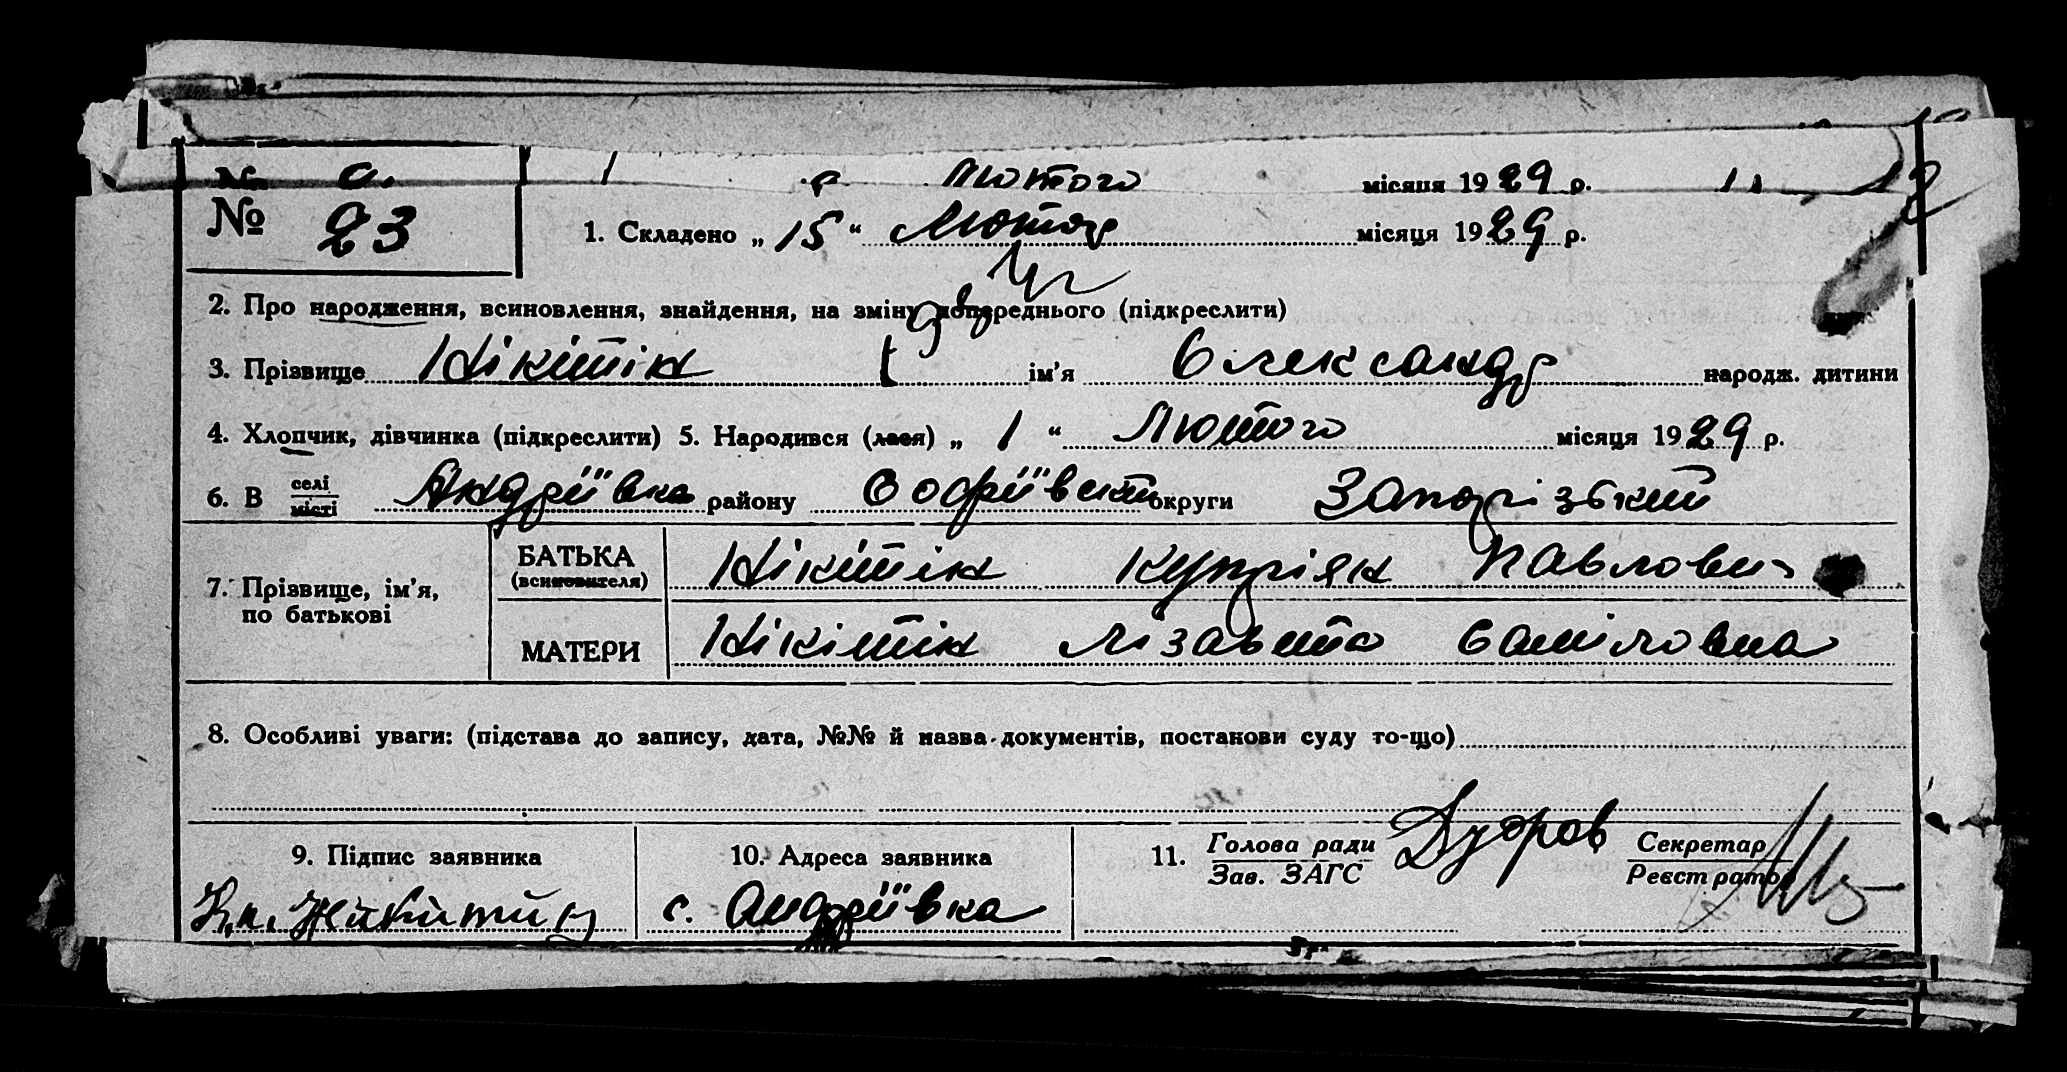 Лютого місяця 1929 р.
№ 23
1. Складено „ 15 “ Лютог місяця 1929 р.
2. Про народження, всиновлення, знайдення, на зміну попереднього (підкреслити)
3. Прізвище Нікітін ім’я Олександр народж. дитини
4. Хлопчик, дівчинка (підкреслити) 5. Народився (лася) „ 1 “ Лютого місяця 1929 р.
6. В селі місті Андріївка району Софіївськ округи Запорізький
7. Прізвище, ім’я, по батькові
БАТЬКА (всиновителя) Нікітін Купріян Павлович
МАТЕРИ Нікітін Лізавета
8. Особливі уваги: (підстава до запису, дата, №№ й назва документів, постанови суду то-що)
9. Підпис заявника
10. Адреса заявника
11. Голова ради Зав. ЗАГС
Секретар Реєстратор
Нікитин
с. Андріївка